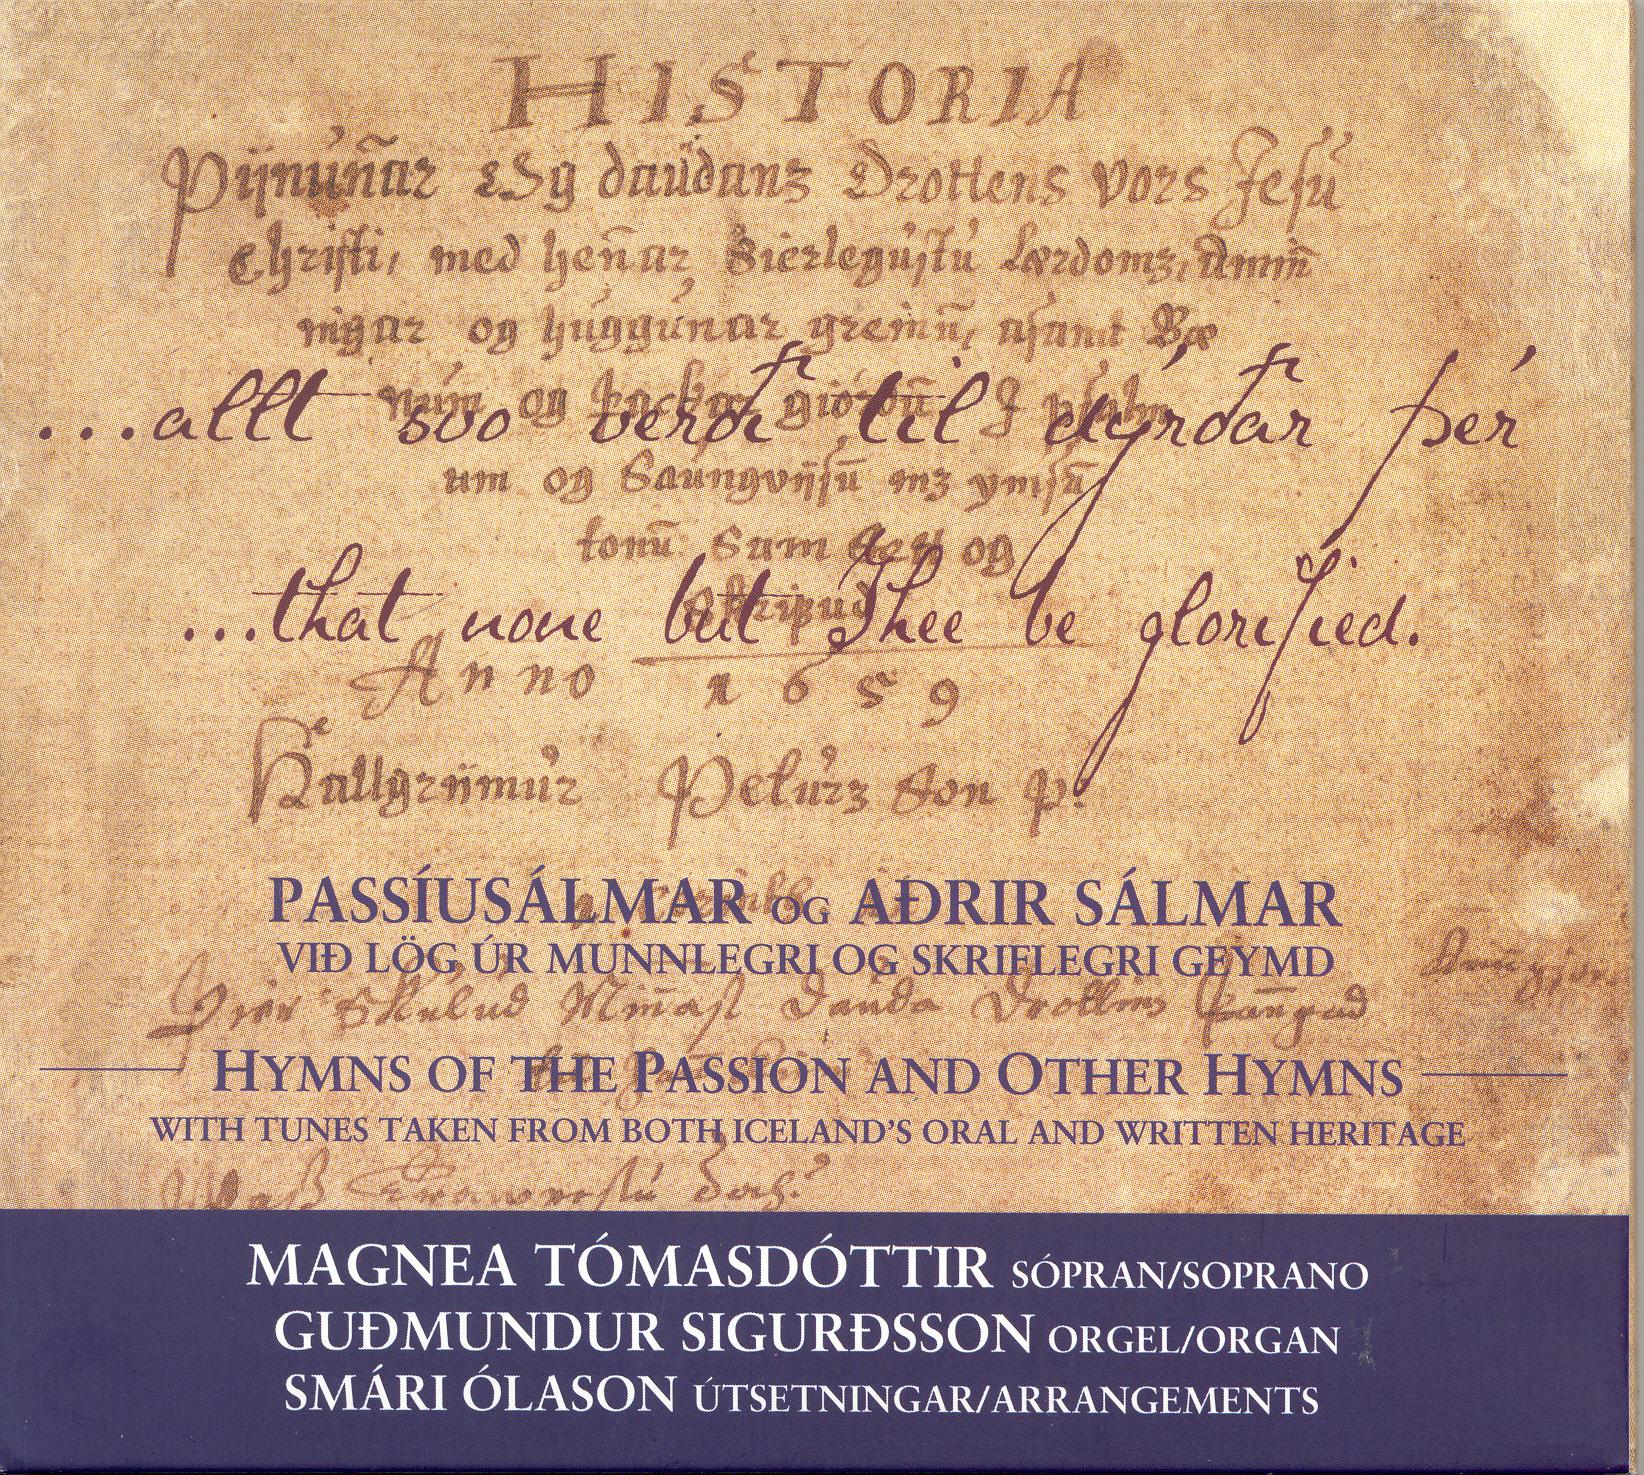 HISTORIA
Pijnunnar Og daudans Drottens vors Jesu
Christi, med hennar Sierlegustu Lærdoms, Aminn
ingar og huggunar greinum, asamt Bæ
num og þackar giordum J psalm
um og Saungvijsum mz ymsum
tonum Samsett og
Skrifud
Anno 1659
Hallgrijmur Peturz Son p.
...allt svo verði til dýrðar þér
...that none but Thee be glorified.
PASSÍUSÁLMAR OG AÐRIR SÁLMAR
VIÐ LÖG ÚR MUNNLEGRI OG SKRIFLEGRI GEYMD
HYMNS OF THE PASSION AND OTHER HYMNS
WITH TUNES TAKEN FROM BOTH ICELAND'S ORAL AND WRITTEN HERITAGE
MAGNEA TÓMASDÓTTIR SÓPRAN/SOPRANO
GUÐMUNDUR SIGURÐSSON ORGEL/ORGAN
SMÁRI ÓLASON ÚTSETNINGAR/ARRANGEMENTS